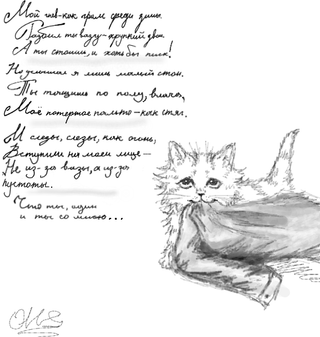 Мой гнев – как гром среди зимы.
Разбил ты вазу – хрупкий звон.
А ты стоишь, и хоть бы писк!
Но услышал я лишь малый стон.
Ты тащишь по полу, влача,
Моё потертое пальто – как стяг.
И слёзы, слёзы, как огонь,
Вступили на моем лице –
Не из-за вазы, а из-за
пустоты..
что ты, один
и ты со мною...